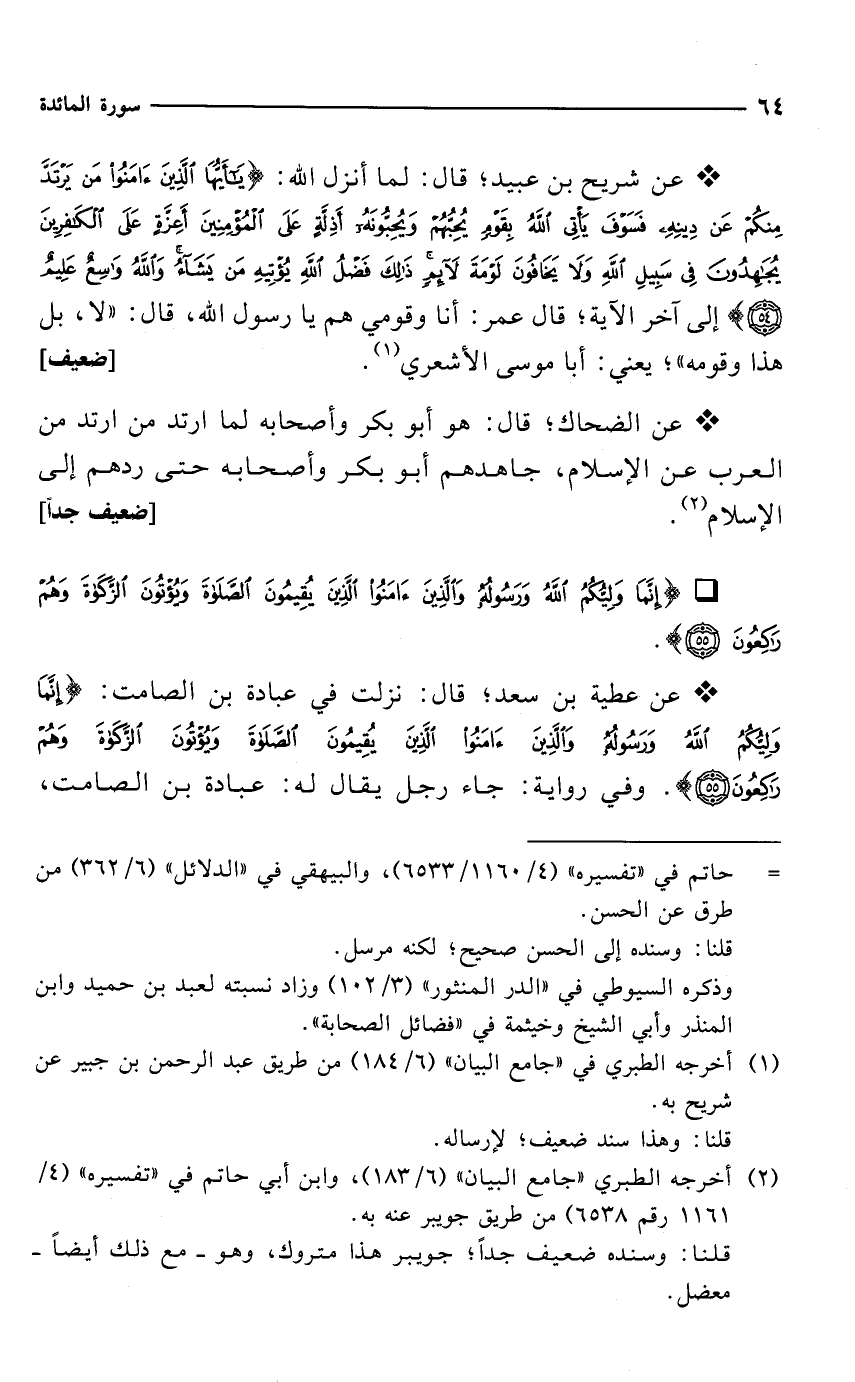 ٦٤ سورة المائدة
❖ عن شريح بن عبيد؛ قال: لما أنزل الله: ﴿يَٰٓأَيُّهَا ٱلَّذِينَ ءَامَنُوا۟ مَن يَرْتَدَّ
مِنكُمْ عَن دِينِهِۦ فَسَوْفَ يَأْتِى ٱللَّهُ بِقَوْمٍ يُحِبُّهُمْ وَيُحِبُّونَهُۥٓ أَذِلَّةٍ عَلَى ٱلْمُؤْمِنِينَ أَعِزَّةٍ عَلَى ٱلْكَٰفِرِينَ
يُجَٰهِدُونَ فِى سَبِيلِ ٱللَّهِ وَلَا يَخَافُونَ لَوْمَةَ لَآئِمٍ ۚ ذَٰلِكَ فَضْلُ ٱللَّهِ يُؤْتِيهِ مَن يَشَآءُ ۚ وَٱللَّهُ وَٰسِعٌ عَلِيمٌ
٥٤﴾ إلى آخر الآية؛ قال عمر: أنا وقومي هم يا رسول الله، قال: «لا، بل
هذا وقومه»؛ يعني: أبا موسى الأشعري(١). [ضعيف]
❖ عن الضحاك؛ قال: هو أبو بكر وأصحابه لما ارتد من ارتد من
العرب عن الإسلام، جاهدهم أبو بكر وأصحابه حتى ردهم إلى
الإسلام(٢). [ضعيف جداً]
❏ ﴿إِنَّمَا وَلِيُّكُمُ ٱللَّهُ وَرَسُولُهُۥ وَٱلَّذِينَ ءَامَنُوا۟ ٱلَّذِينَ يُقِيمُونَ ٱلصَّلَوٰةَ وَيُؤْتُونَ ٱلزَّكَوٰةَ وَهُمْ
رَٰكِعُونَ ٥٥﴾.
❖ عن عطية بن سعد؛ قال: نزلت في عبادة بن الصامت: ﴿إِنَّمَا
وَلِيُّكُمُ ٱللَّهُ وَرَسُولُهُۥ وَٱلَّذِينَ ءَامَنُوا۟ ٱلَّذِينَ يُقِيمُونَ ٱلصَّلَوٰةَ وَيُؤْتُونَ ٱلزَّكَوٰةَ وَهُمْ
رَٰكِعُونَ ٥٥﴾. وفي رواية: جاء رجل يقال له: عبادة بن الصامت،
= حاتم في «تفسيره» (٤/ ١١٦٠/ ٦٥٣٣)، والبيهقي في «الدلائل» (٦/ ٣٦٢) من
طرق عن الحسن.
قلنا: وسنده إلى الحسن صحيح؛ لكنه مرسل.
وذكره السيوطي في «الدر المنثور» (٣/ ١٠٢) وزاد نسبته لعبد بن حميد وابن
المنذر وأبي الشيخ وخيثمة في «فضائل الصحابة».
(١) أخرجه الطبري في «جامع البيان» (٦/ ١٨٤) من طريق عبد الرحمن بن جبير عن
شريح به.
قلنا: وهذا سند ضعيف؛ لإرساله.
(٢) أخرجه الطبري «جامع البيان» (٦/ ١٨٣)، وابن أبي حاتم في «تفسيره» (٤/
١١٦١ رقم ٦٥٣٨) من طريق جويبر عنه به.
قلنا: وسنده ضعيف جداً؛ جويبر هذا متروك، وهو ـ مع ذلك أيضاً ـ
معضل.